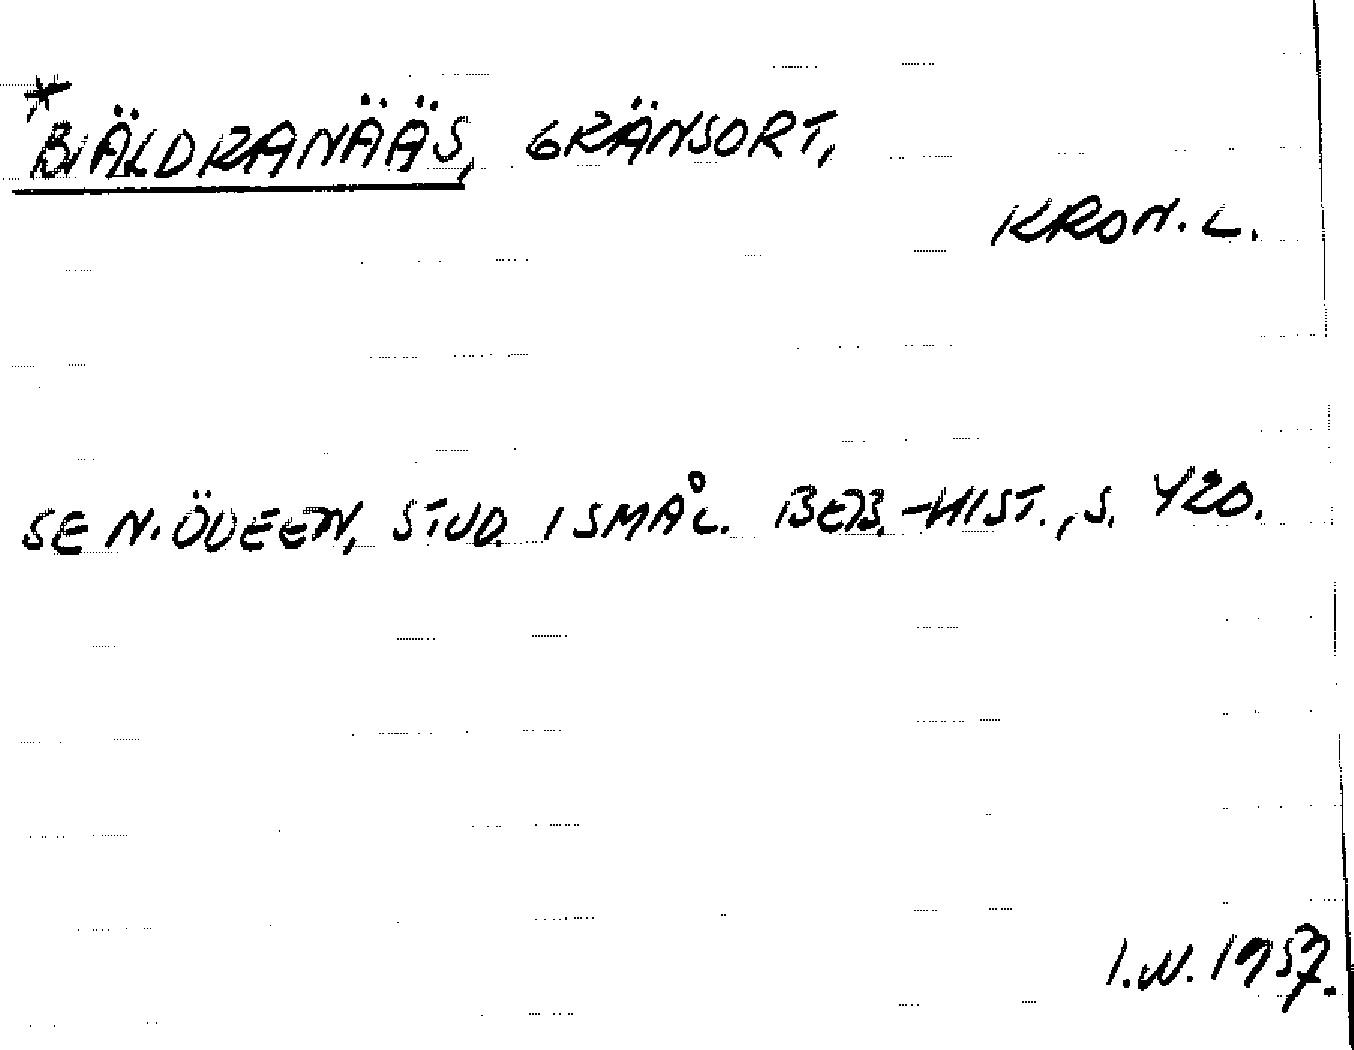 *BIÄLDRANÄÄS, GRÄNSORT,
KRON. L.
SE N. ÖDEEN, STUD. I SMÅL. BEB.-HIST., S. 420.
I.N. 1957.